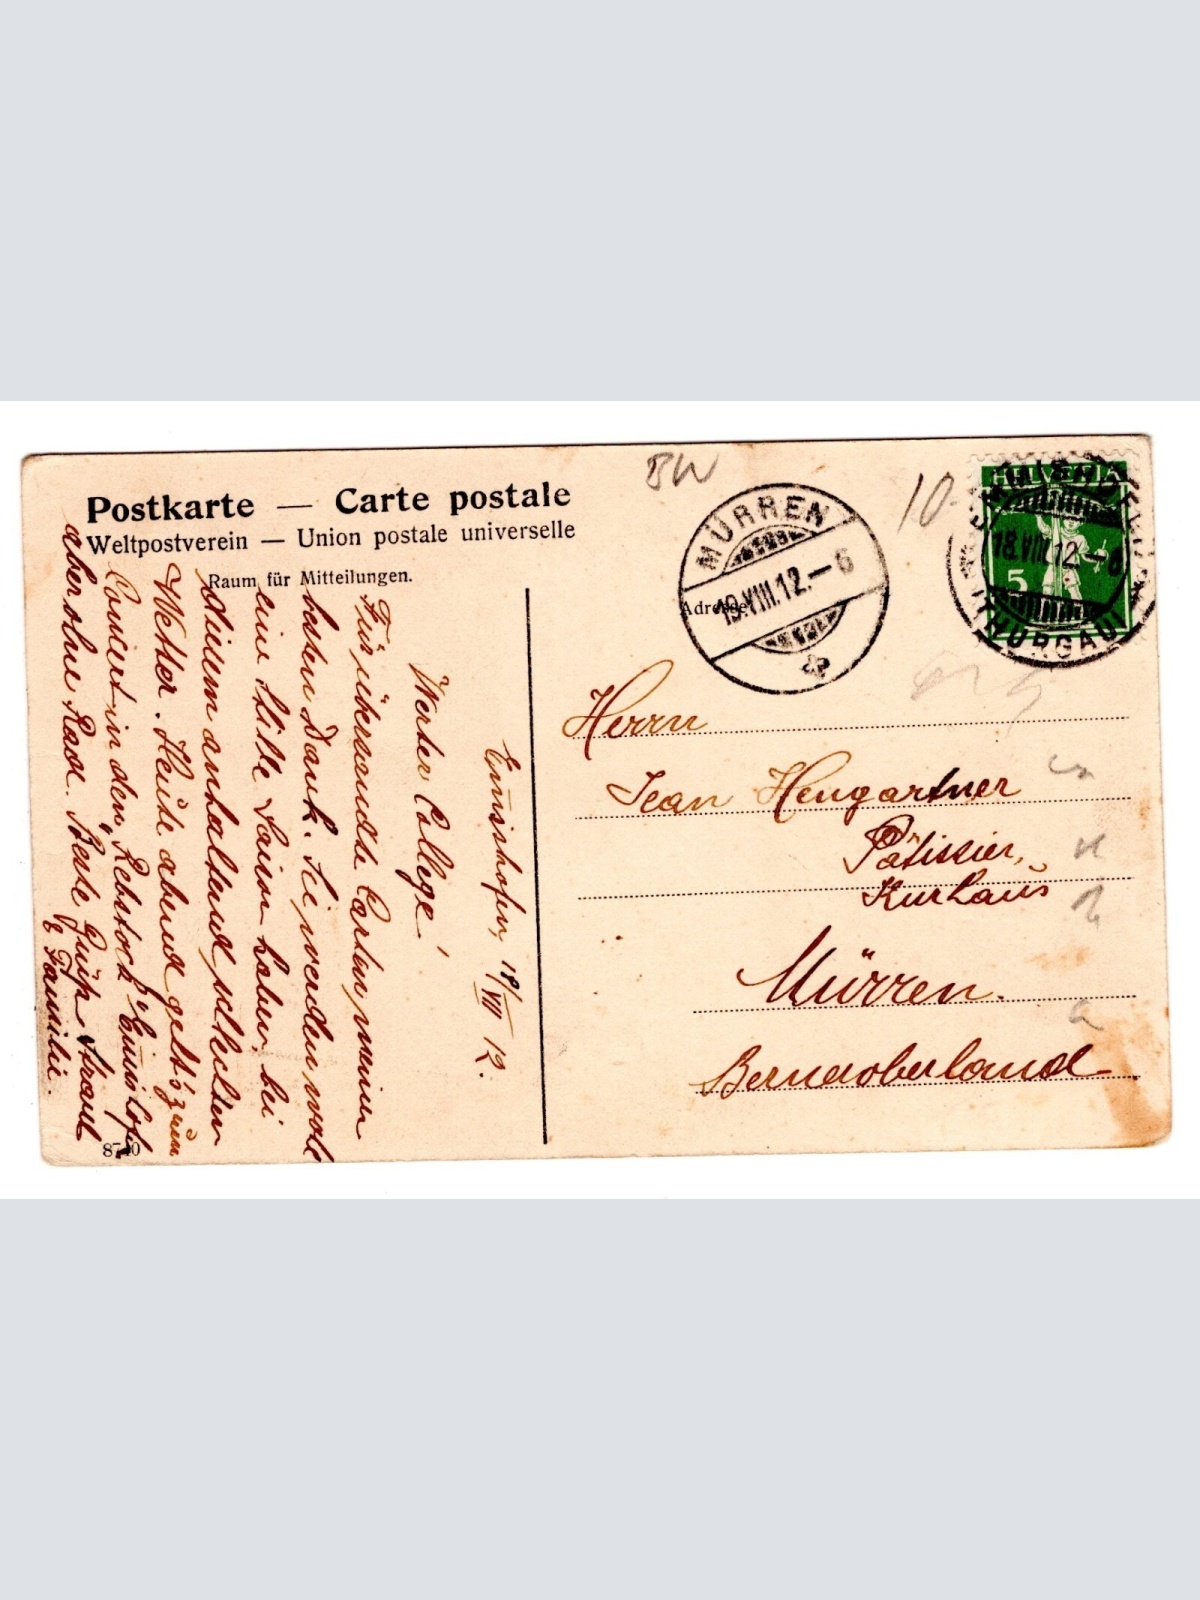 Postkarte — Carte postale
Weltpostverein — Union postale universelle
Raum für Mitteilungen.
Emmishofen, 18/VIII 12.
Werter College!
Für übersandte Carten, meinen
besten Dank. Sie werden wohl
eine stille Saison haben bei
diesem anhaltend schlechten
Wetter. Heute abend geht's zum
Concert in den „Rebstock" Emmishofen
aber ohne Rad. Beste Grüße
& Familie.
8740
BW
10.-
MÜRREN
19.VIII.12.–6
HELVETIA
5
18.VIII.12.–6
(THURGAU)
Adresse
Herrn
Jean Hengartner
Pâtissier,
Kurhaus
Mürren.
Berneroberland